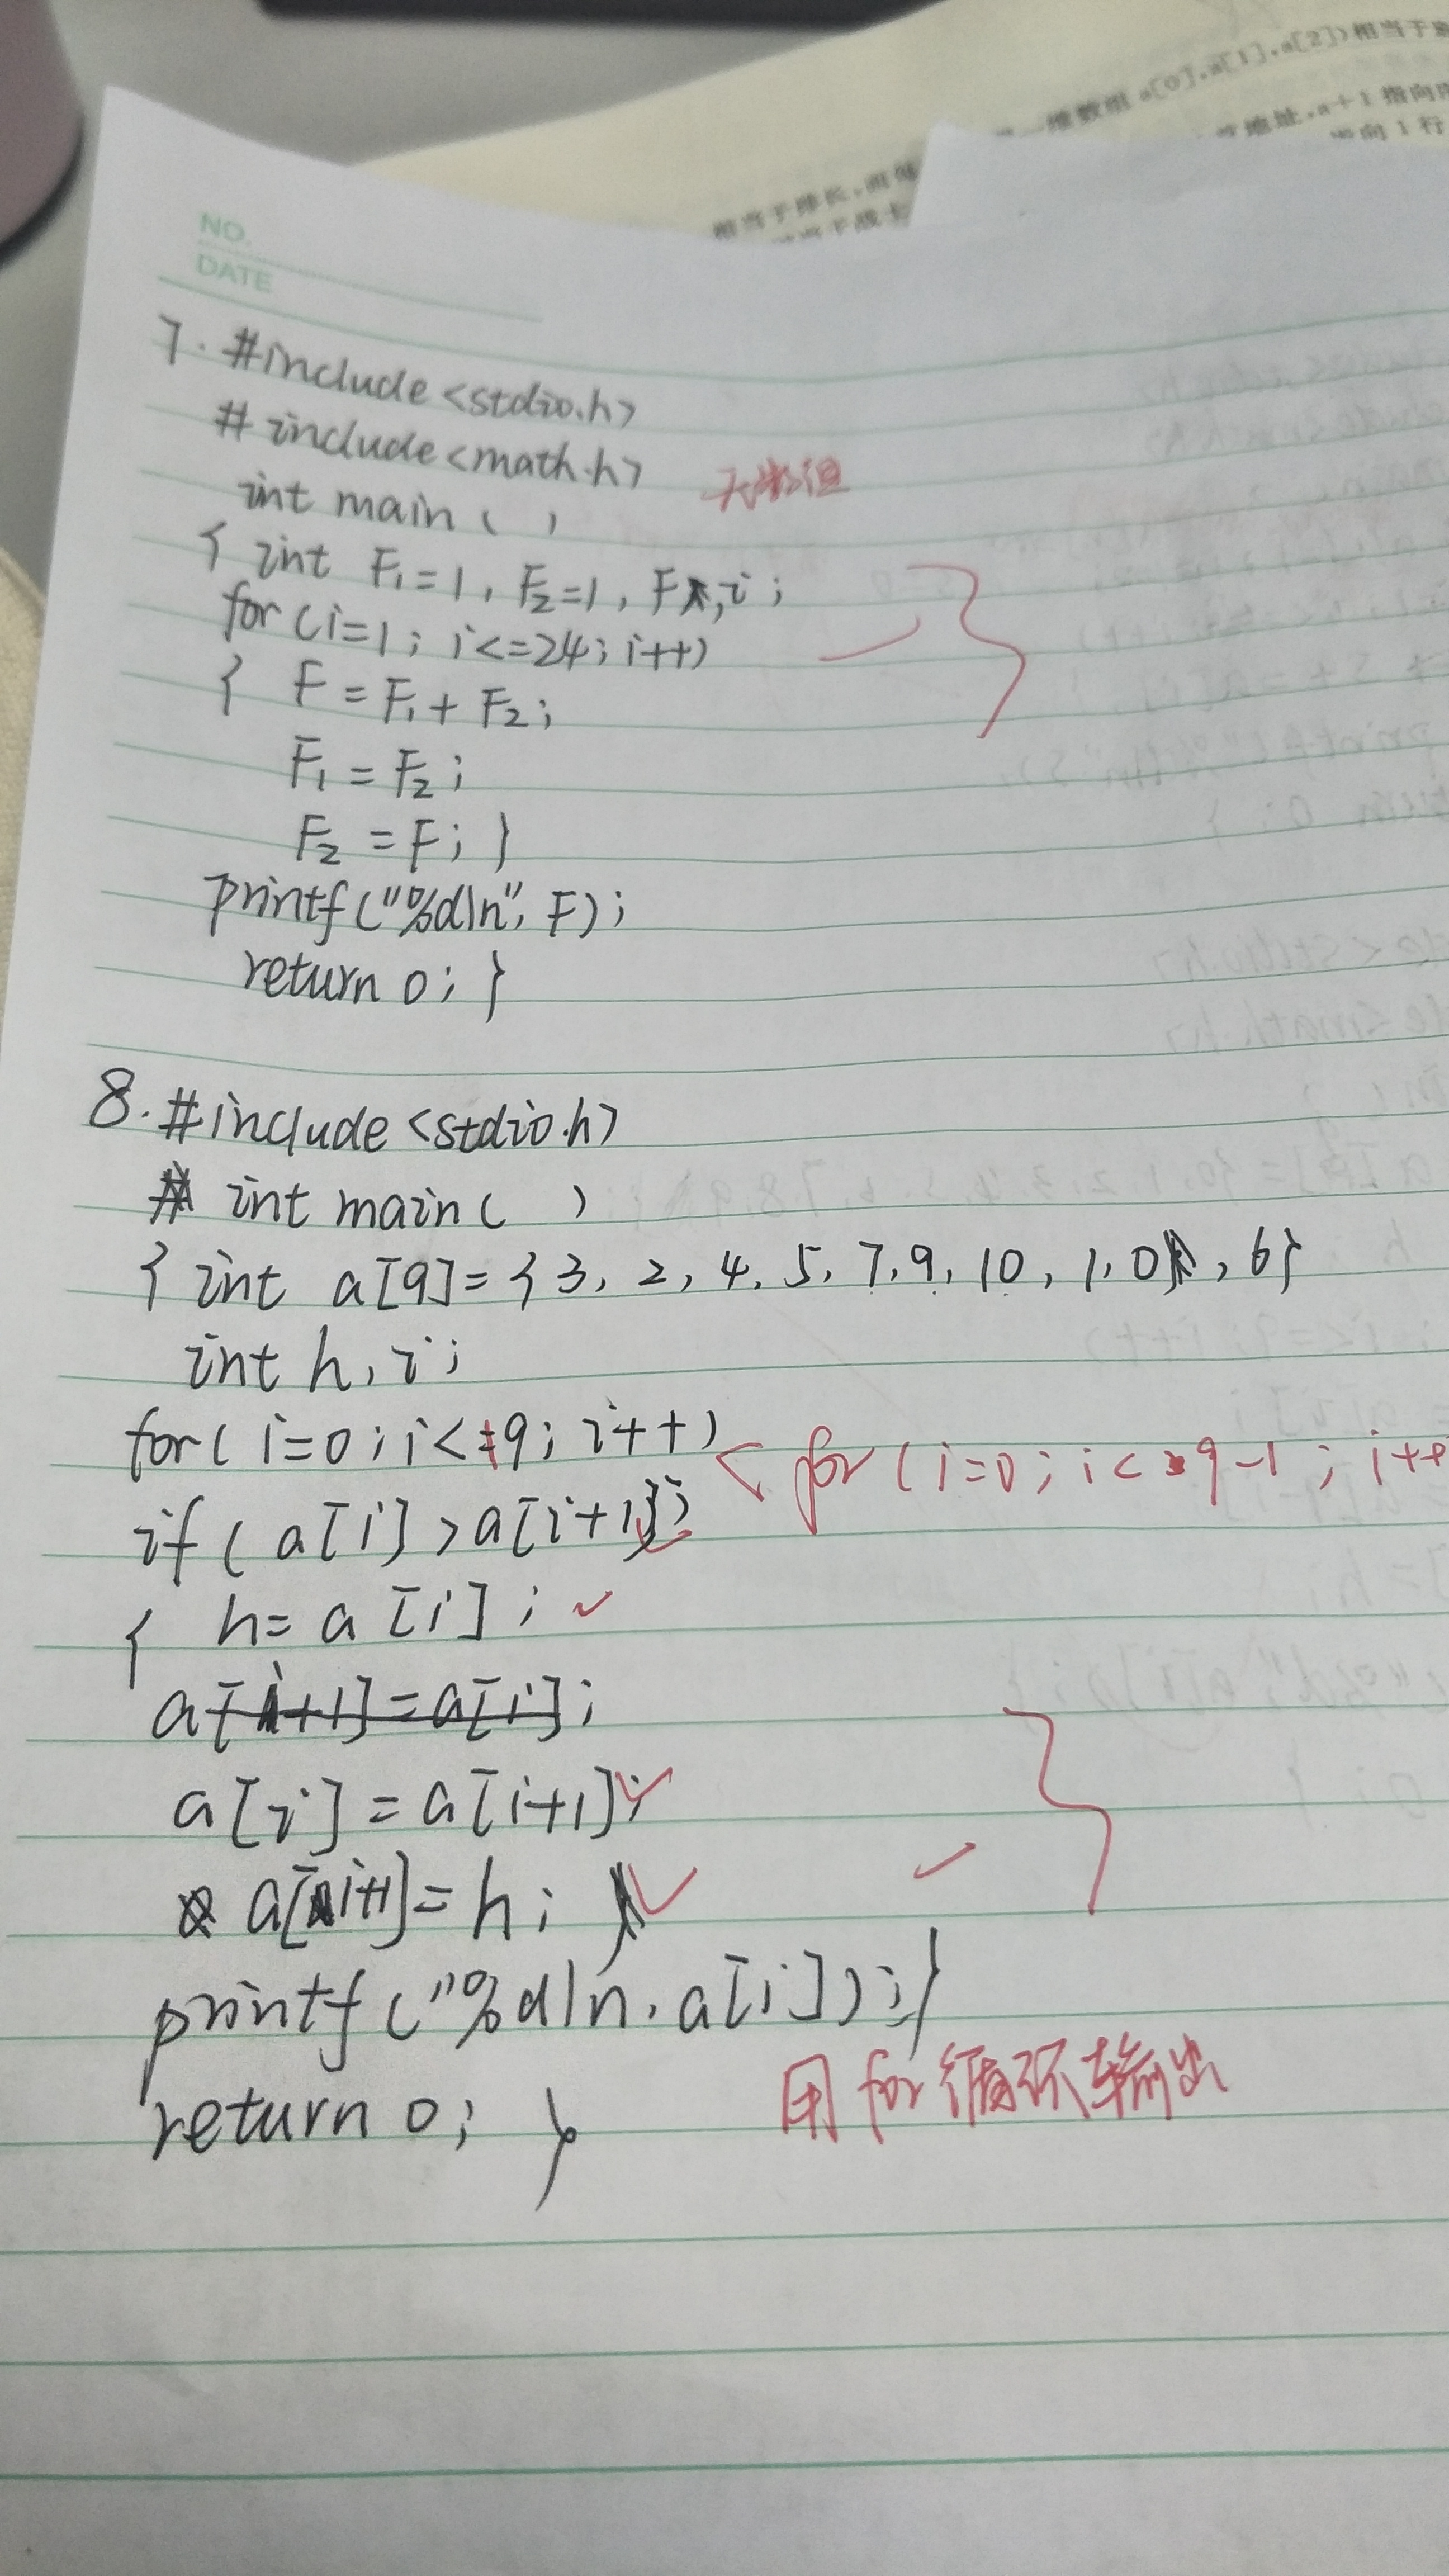 一维数组 a[0],a[1],a[2])相当于
地址,a+1 指向
向1行
相当于排长,而每
NO.
DATE
7. #include<stdio.h>
#include<math.h>
无数组
int main ( )
{ int F₁=1, F₂=1, F,i;
for (i=1; i<=24; i++)
{ F = F₁+ F₂;
F₁ = F₂;
F₂ = F; }
printf("%d\n", F);
return 0; }
8. #include<stdio.h>
int main ( )
{ int a[9]={3, 2, 4, 5, 7, 9, 10, 1, 0, 6}
int h, i;
for( i=0; i<=9; i++)
for (i=0; i<9-1; i++
if ( a[i] > a[i+1])
{ h= a[i];
a[i+1]=a[i];
a[i]=a[i+1];
a[i+1]=h;
printf ("%d\n, a[i]);}
用for循环输出
return 0; }